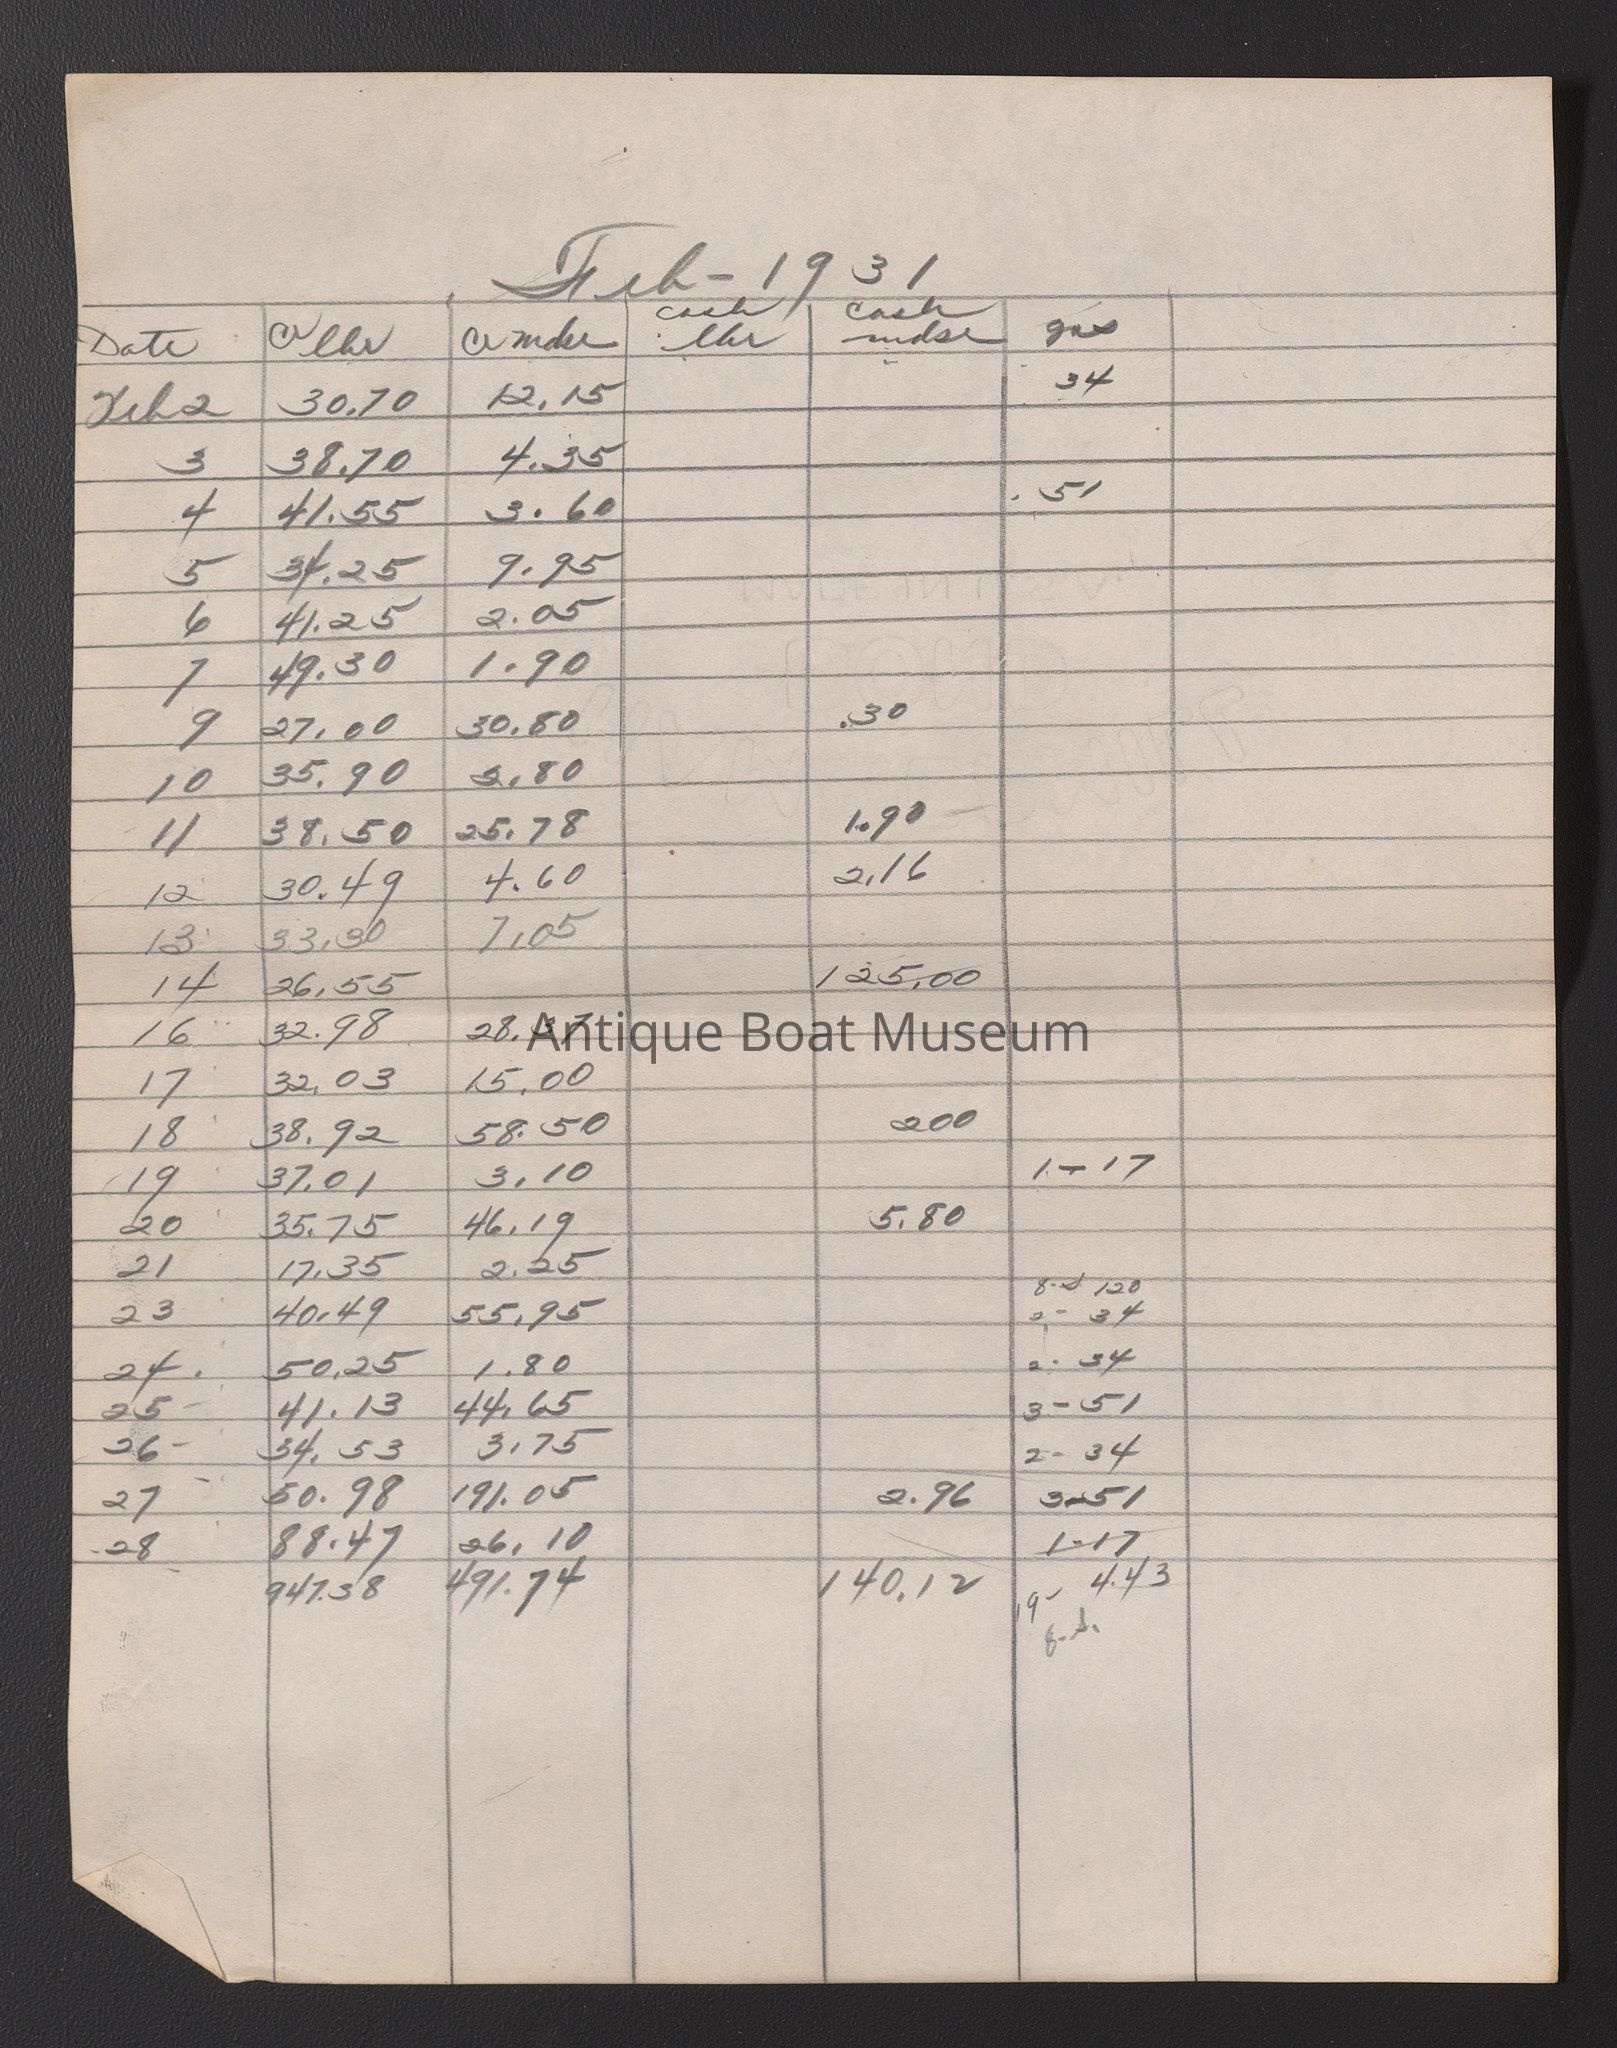 Feb - 1931
Date Cr lbr Cr mdse cash lbr cash mdse gas
Feb 2 30.70 12.15 34
3 38.70 4.35
4 41.55 3.60 .51
5 34.25 9.95
6 41.25 2.05
7 49.30 1.90
9 27.00 30.80 .30
10 35.90 2.80
11 38.50 25.78 1.90
12 30.49 4.60 2.16
13 33.30 7.05
14 26.55 125.00
16 32.98
Antique Boat Museum
17 32.03 15.00
18 38.92 58.50 200
19 37.01 3.10 1-17
20 35.75 46.19 5.80
21 17.35 2.25
120
23 40.49 55.95 2- 34
24. 50.25 1.80 2- 34
25- 41.13 44.65 3-51
26- 34.53 3.75 2- 34
27 50.98 191.05 2.96 3-51
28 88.47 26.10 1-17
947.38 491.74 140.12 4.43
19-